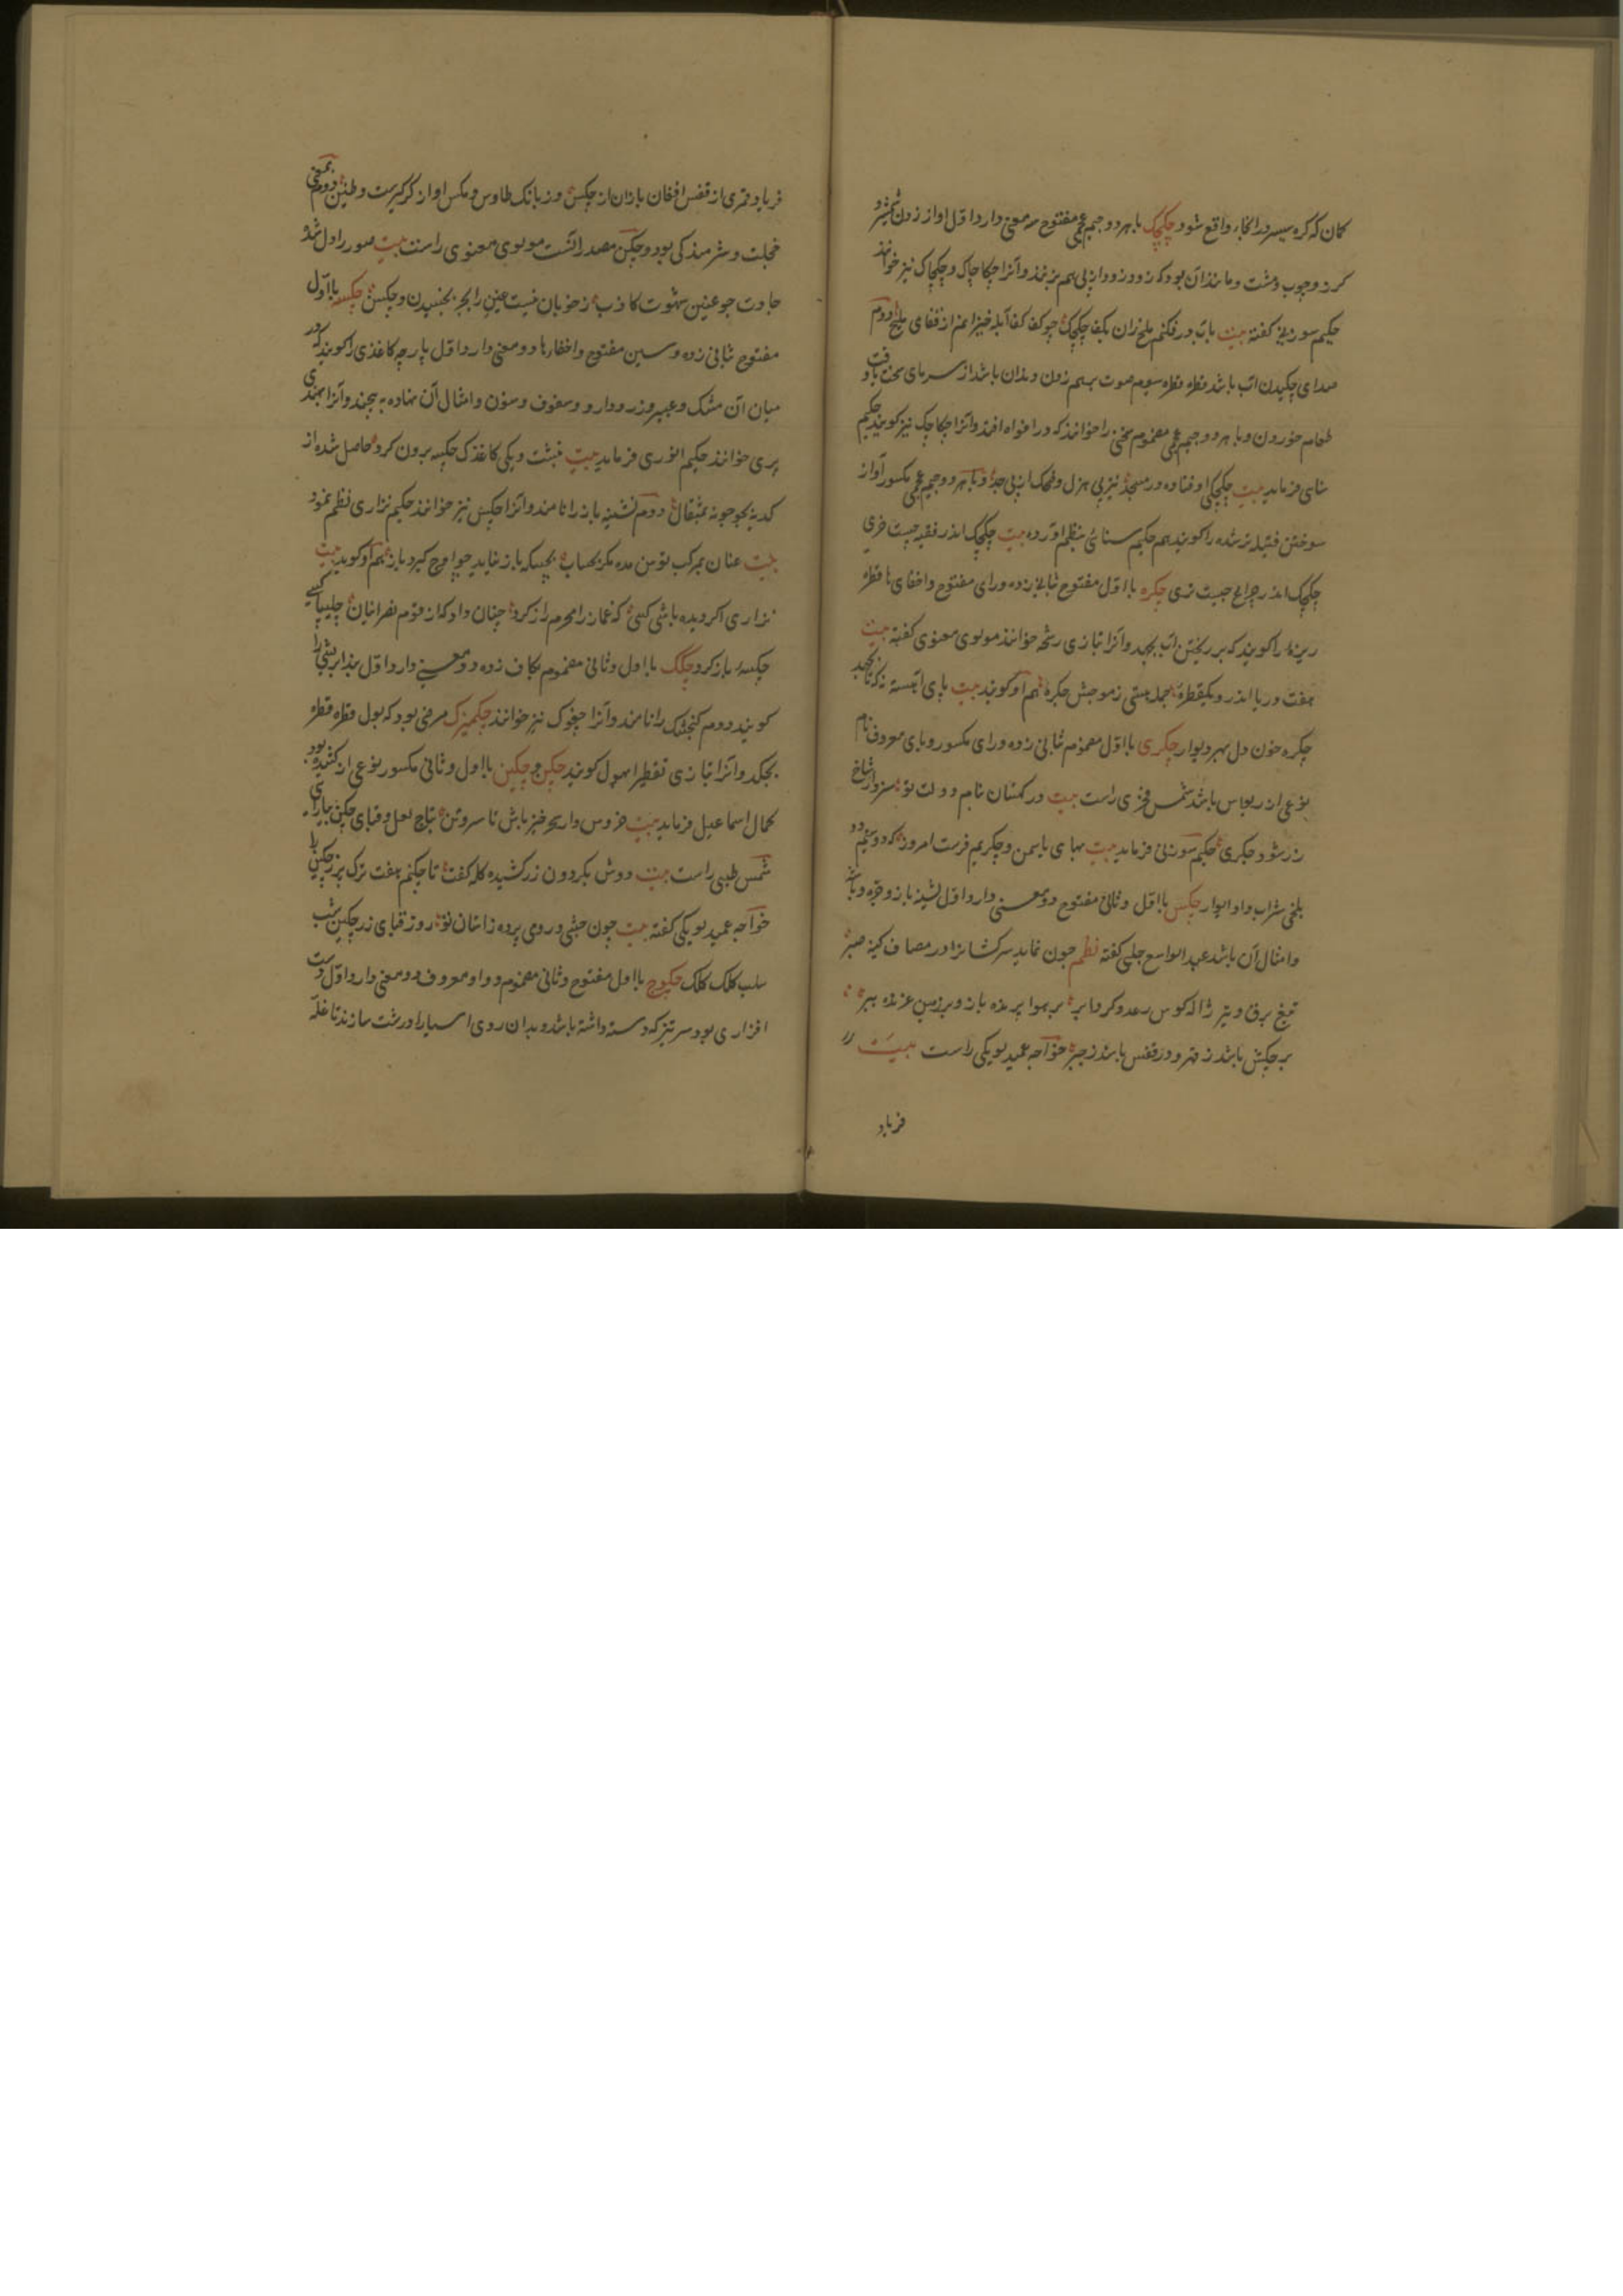 کمان که کره سیسر در انجا واقع شود چکچک با هر دو جیم عجمی مفتوح سه معنی دارد اول اواز زدن شمشیر و
کرز و چوب و مشت و مانند آن بود که زود زود از پی هم بزنند و آنرا چکاچاک و چکچاک نیز خوانند
حکیم سوزنی گفته بیت
صدای چکیدن آب باشد قطره قطره سیوم صوت بر هم زدن دندان باشد از سرمای سخت یا وقت
طعام خوردن و با هر دو جیم عجمی مضموم سخنی را خوانند که در افواه افتد و آنرا چکاچک نیز کویند حکیم
سنای فرماید بیت چکچکی اوفتاده در مسجد نیز پی هزل و ضحک از پی جد و با هر دو جیم عجمی مکسور آواز
سوختن فتیله تر شده را کویند هم حکیم سنائی بنظم اورده بیت چکچک اندر فقیه چیست خری
چکچک اندر چراغ چیست تری چکره با اول مفتوح بثانی زده و رای مفتوح و اخفای ها قطره
ریزه را کویند که بر ریختن آب بجهد و آنرا بتازی رشحه خوانند مولوی معنوی کفته بیت
هفت دریا اندر و یکقطرهٔ جمله هستی ز موجش چکرهٔ هم او کوید بیت پای آهسته نه که تا نجهد
چکره خون دل بهر دیوار چکری با اول مضموم ثانی زده و رای مکسور و یای معروف نام
نوعی از ریواس باشد شمس فخری راست بیت در کهستان بنام دولت تو سزد ار شاخ
رز شود چکری حکیم سوزنی فرماید بیت بهای یاسمن و چکریم فرست امروز که دوستیم دو
بلخی شراب داد ایوار چکس با اول و ثانی مفتوح دو معنی دارد اول نشیمنه باز و چرغ و باشه
و امثال آن باشد عبدالواسع جبلی کفته نظم چون نماید سرکشانرا در مصاف کینه صبر
تیغ برق و تیر ژاله کوس رعد و کرد ابر بر هوا پرنده باز و بر زمین غرنده ببر
بر چکش باشد ز قهر و در قفس باشد ز جبر خواجه عمید لویکی راست بیت
فریاد
فریاد قمری از قفس افغان بازان از چکس وز بانک طاوس و مکس اواز کرکیست و طنین دوم بمعنی
خجلت و شرمندکی بود و چکسن مصدر آنست مولوی معنوی راست بیت
مفتوح ثانی زده و سین مفتوح و اخفاء ها دو معنی دارد اول پارچه کاغذی را کویند که در
میان آن مشک و عبیر و زر و دارو و سفوف و سون و امثال آن نهاده بپیچند و آنرا بهندی
پری خوانند حکیم انوری فرماید بیت نبشت و یکی کاغذک چکسه برون کرد حاصل شده از
کدیه بجوجو نه بمثقال دوم نشیمنه باز را نامند و آنرا چکس نیز خوانند حکیم نزاری نظم نموده
بیت عنان مرکب توسن مده مکر بحساب بچکسه باز نیاید چو اوج کیرد باز هم او کوید بیت
نزاری اکر دیده باشی کسی که غماز را محرم راز کرد چنان داد که از قوم نصرانیان چلیپا کسی
چکسه باز کرد چکک با اول و ثانی مضموم بکاف زده دو معنی دارد اول
کویند دوم کنجشک را نامند و آنرا چغوک نیز خوانند چکمیزک مرضی بود که بول قطره قطره
بچکد و آنرا بتازی تقطیر البول کویند چکن و چکین با اول و ثانی مکسور نوعی از کشیده بود
کمال اسماعیل فرماید بیت خروس وار سحرخیز باش تا سر و تن بتاج لعل و قبای چکن بیارای
شمس طبسی راست بیت دوش بکردون زر کشیده کله کفت تا چکنم هفت ترک پر زر چکین را
خواجه عمید لویکی کفته بیت چون حبشی و رومی پرده زانسان تو روز قبای زر چکین شب
سلب کلک کلک چکوچ با اول مفتوح و ثانی مضموم و واو معروف دو معنی دارد اول دست
افزاری بود سر تیز که دسته داشته باشد و بدان روی اسیا را درشت سازند تا غله